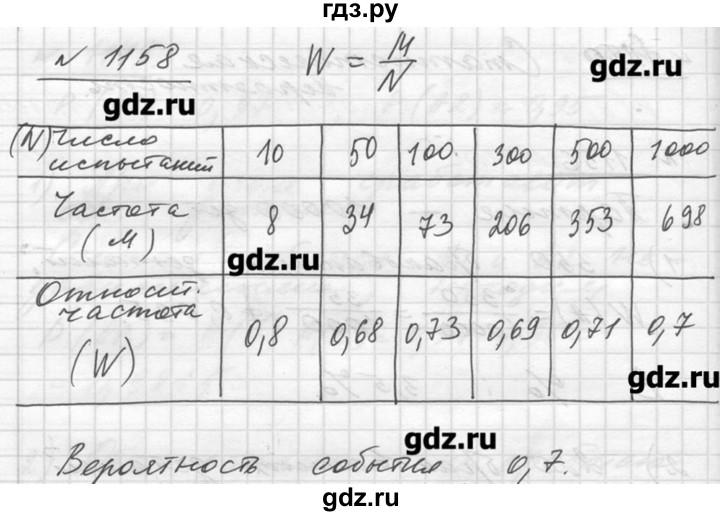 гдз.ру
№ 1158 W = M/N
gdz.ru
gdz.ru
(N) Число испытаний 10 50 100 300 500 1000
Частота (M) 8 34 73 206 353 698
gdz.ru
Относит. частота (W) 0,8 0,68 0,73 0,69 0,71 0,7
gdz.ru
gdz.ru
Вероятность события 0,7.
gdz.ru